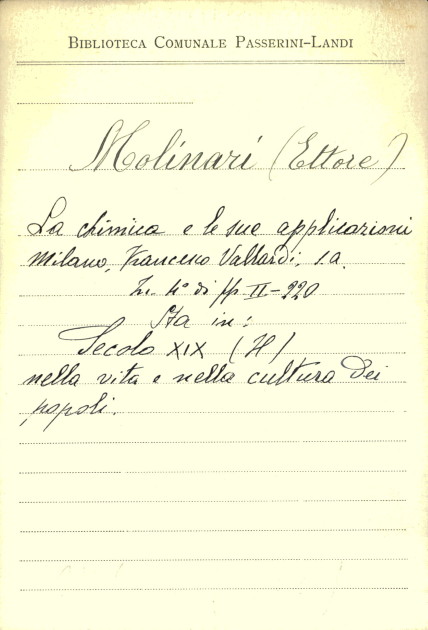 BIBLIOTECA COMUNALE PASSERINI-LANDI
Molinari (Ettore)
La chimica e le sue applicazioni
Milano, Francesco Vallardi, s.a.
In 4° di pp. II-220
Sta in:
Secolo XIX (Il)
nella vita e nella cultura dei
popoli.